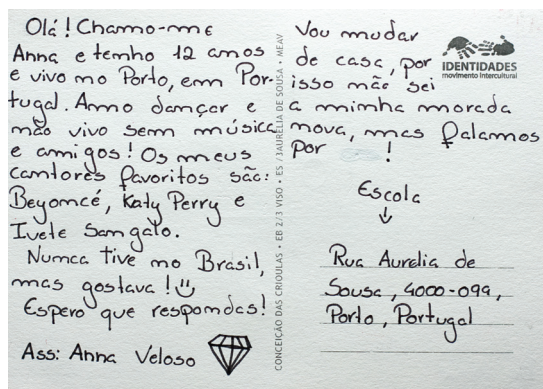 Olá! Chamo-me
Anna e tenho 12 anos
e vivo no Porto, em Por-
tugal. Amo dançar e
não vivo sem música
e amigos! Os meus
cantores favoritos são:
Beyoncé, Katy Perry e
Ivete Sangalo.
Nunca tive no Brasil,
mas gostava!
Espero que respondas!
Ass: Anna Veloso
CONCEIÇÃO DAS CRIOULAS • EB 2/3 VISO • ES /3AURÉLIA DE SOUSA • MEAV
Vou mudar
de casa, por
isso não sei
a minha morada
nova, mas falamos
por !
IDENTIDADES
movimento intercultural
Escola
↓
Rua Aurelia de
Sousa, 4000-099,
Porto, Portugal